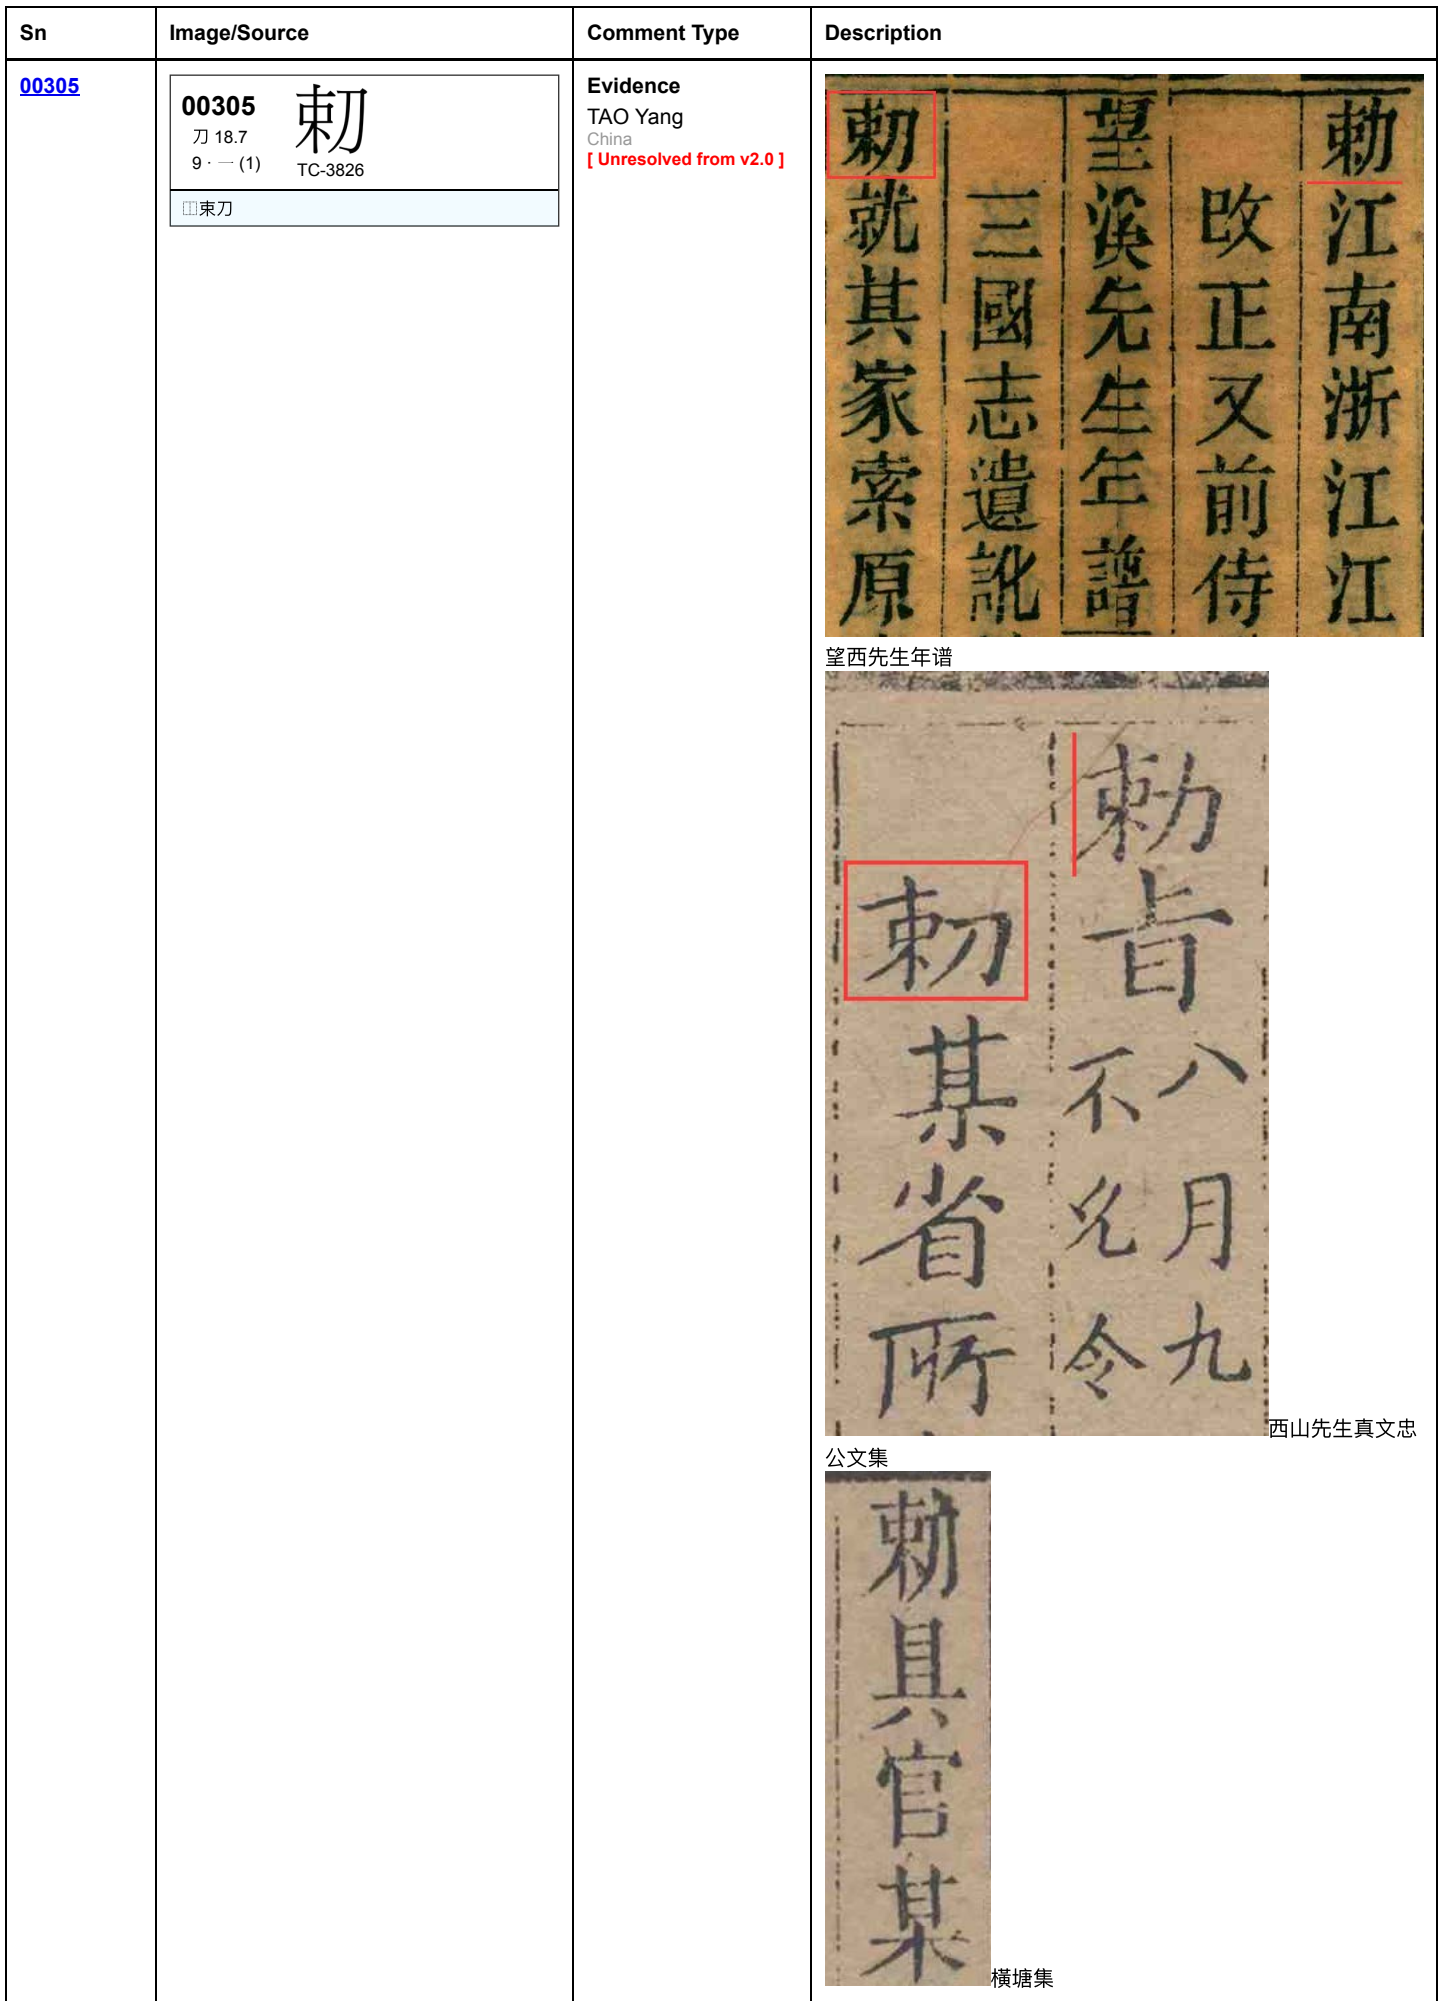 Sn Image/Source Comment Type Description
00305
00305
刀 18.7
9 · 一 (1)
TC-3826
⿰束刀
Evidence
TAO Yang
China
[ Unresolved from v2.0 ]
勅江南浙江江
改正又前侍
望溪先生年譜
三國志遺訛
就其家索原
望西先生年谱
勅旨
八月九
不允令
某省所
西山先生真文忠
公文集
具官某
橫塘集